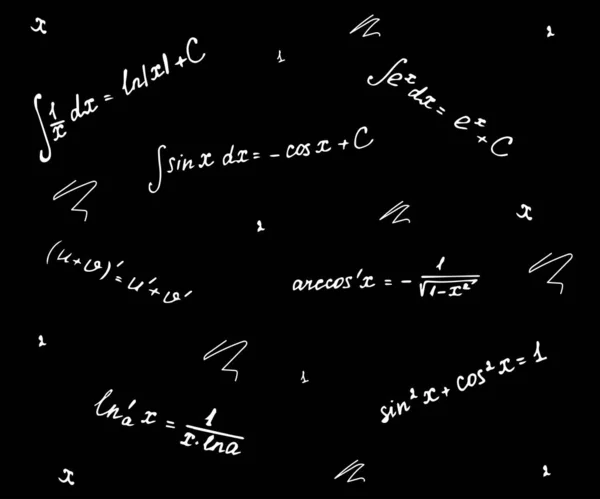 x
1
2
∫ 1/x dx = ln|x| + C
∫e^x dx = e^x + C
∫sin x dx = - cos x + C
x
2
(u+v)' = u' + v'
arccos'x = - 1/√(1-x²)
2
1
sin² x + cos² x = 1
ln'a x = 1/(x·lna)
x
2